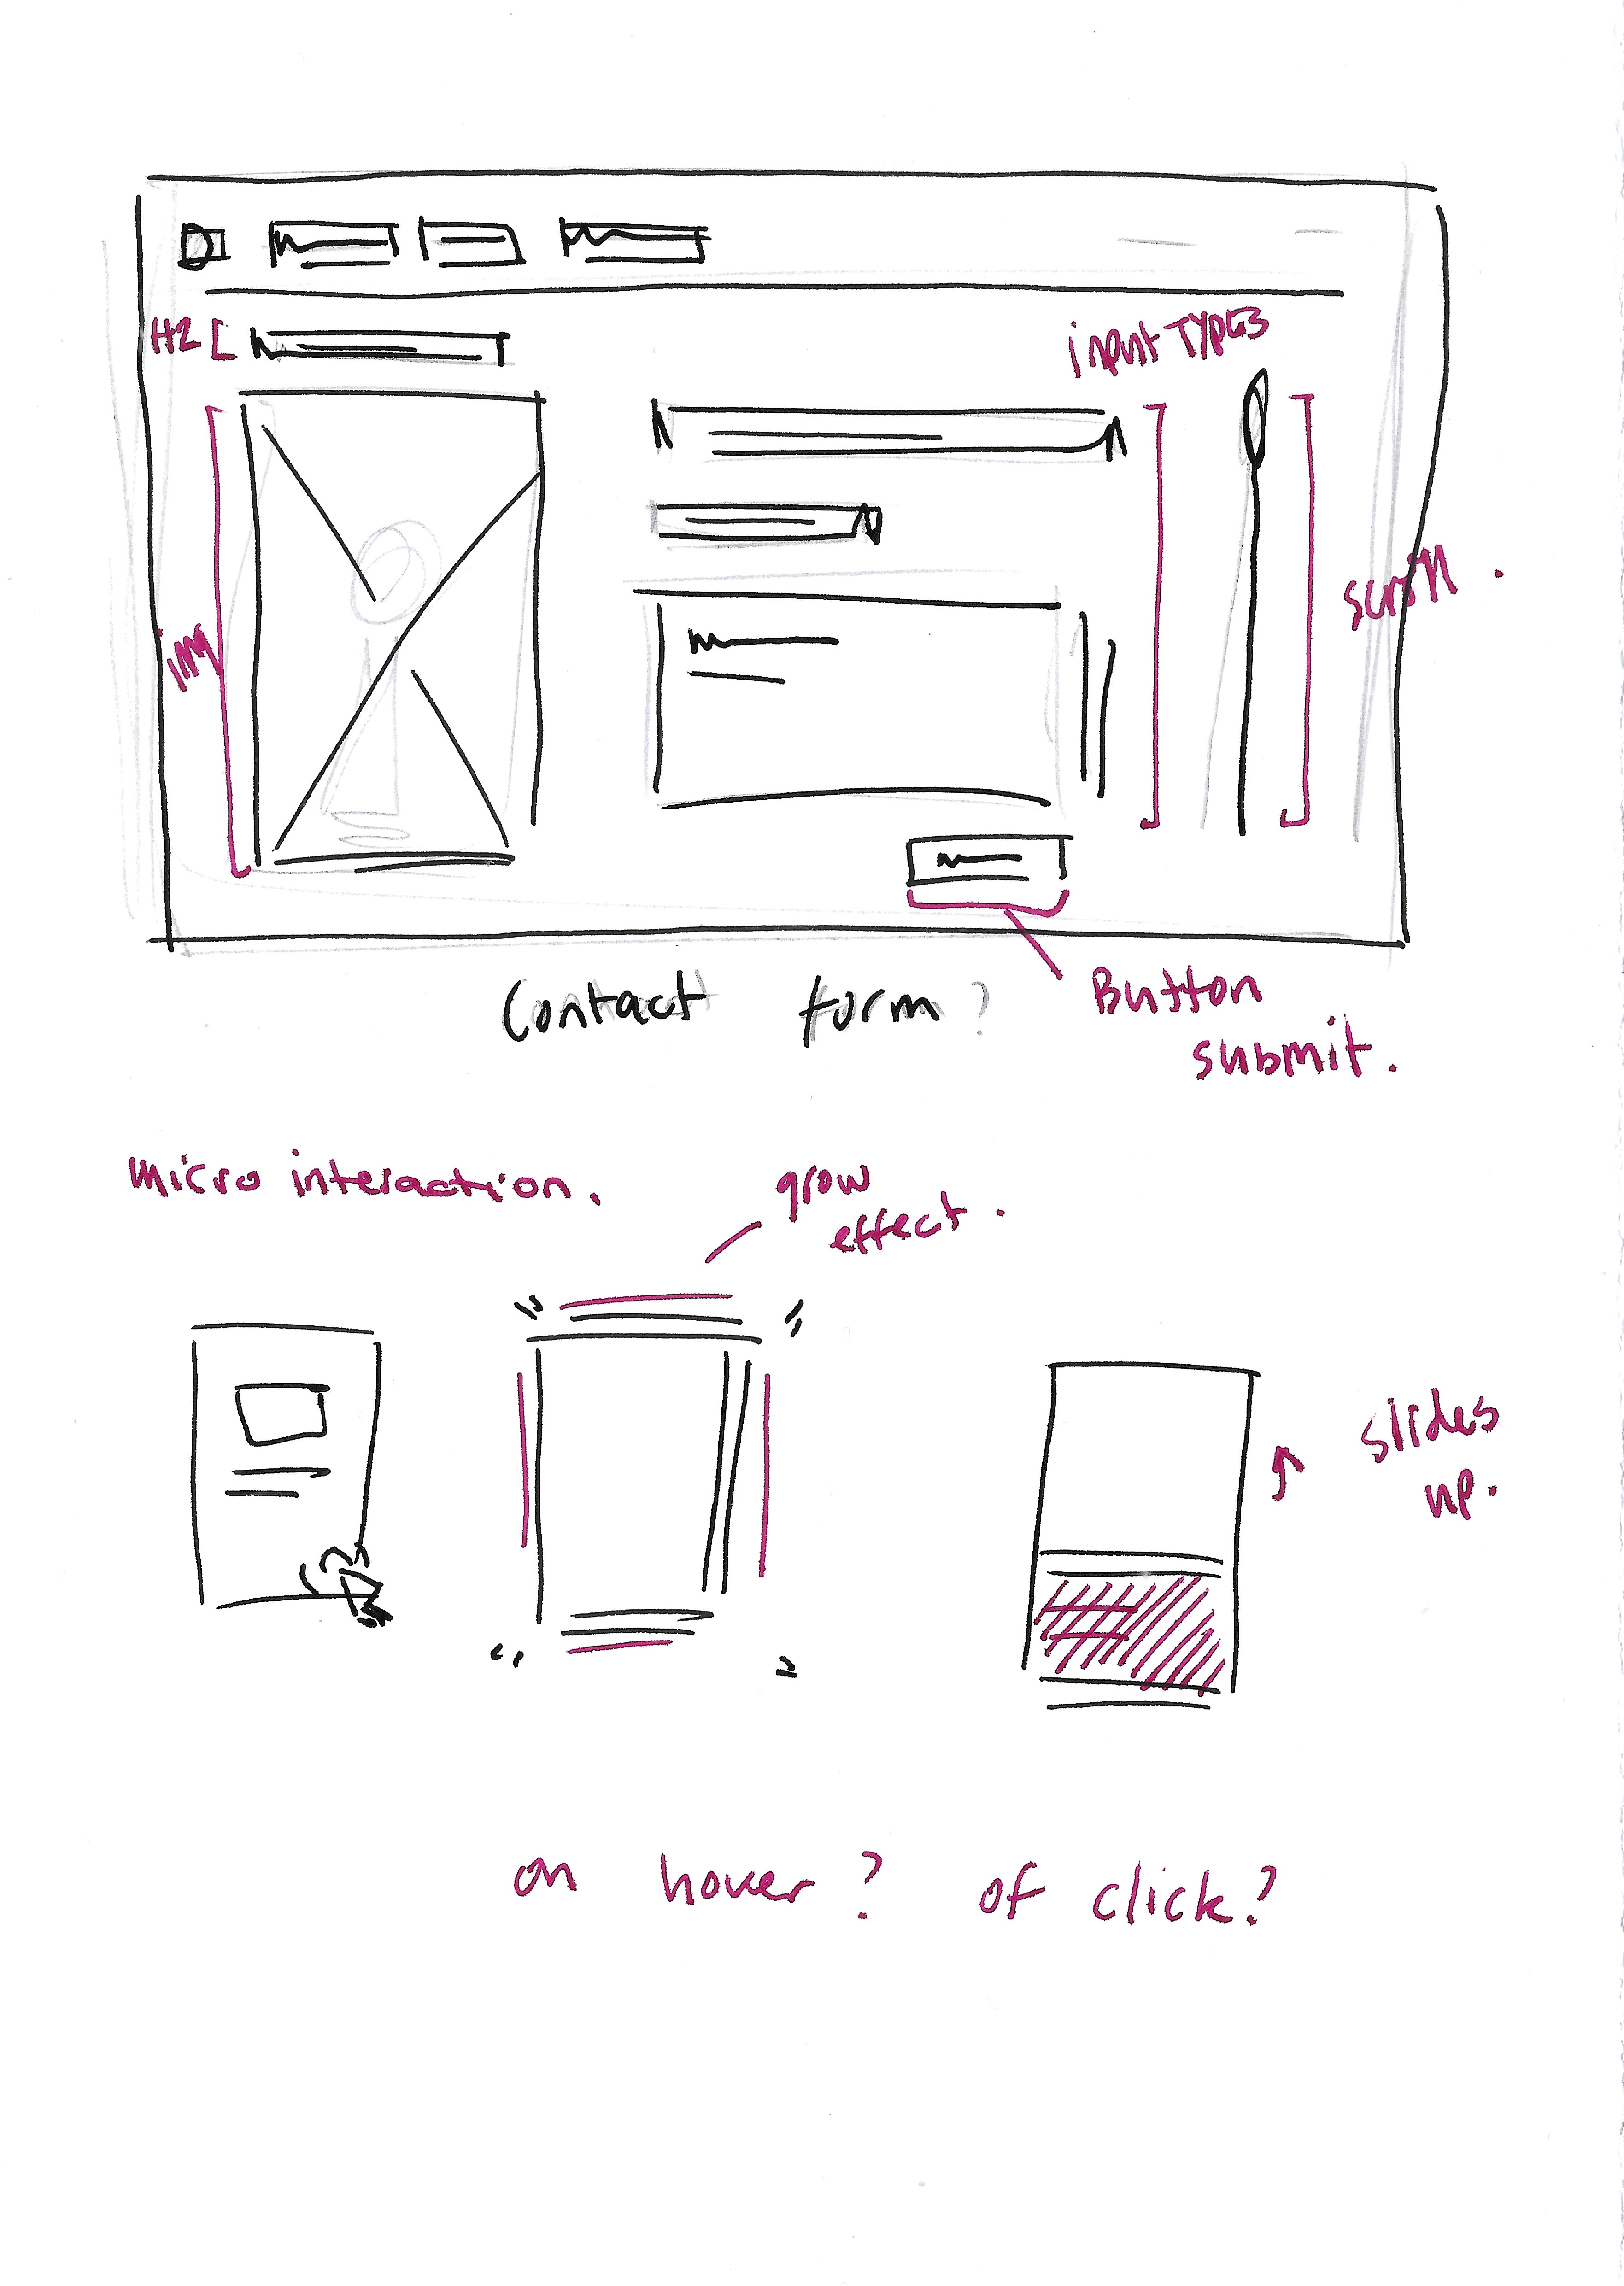 H2
input TYPES
img
scroll.
Contact form?
Button
submit.
micro interaction.
grow
effect.
slides
up.
on hover? of click?